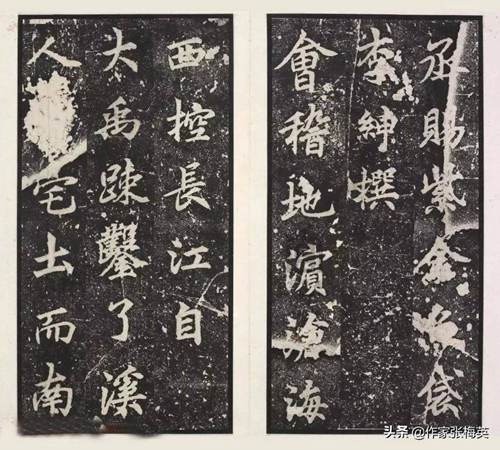 丞賜紫金魚袋
李紳撰
會稽地濵滄海
西控長江自
大禹踈鑿了溪
人宅土而南
头条 @作家张梅英